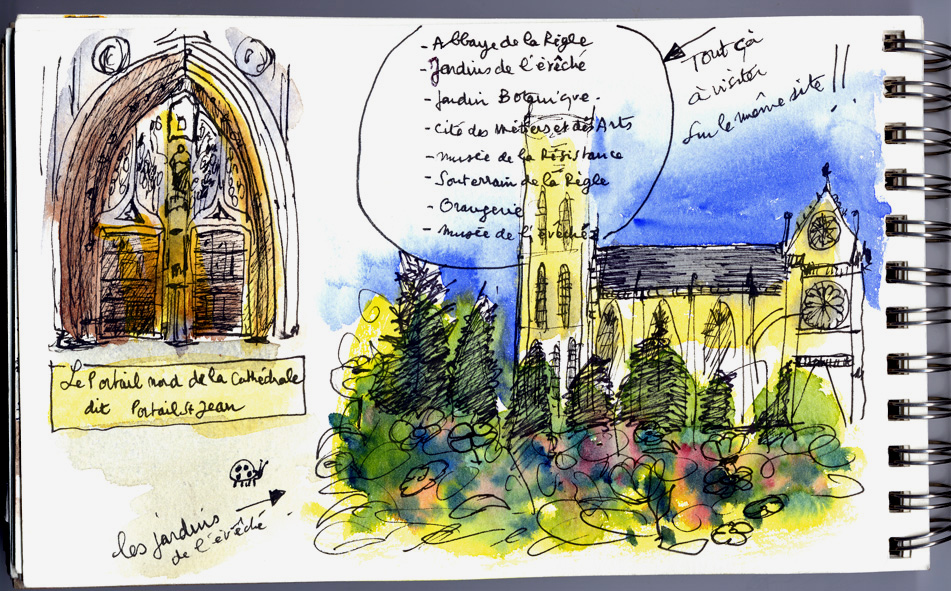 - Abbaye de la Règle
- Jardins de l'évêché
- Jardin Botanique.
- Cité des Métiers et des Arts
- Musée de la Résistance
- Souterrain de la Règle
- Orangerie
- Musée de l'évêché
Tout çà
à visiter
sur le même site !!
Le Portail nord de la Cathédrale
dit Portail St Jean
les jardins
de l'évêché